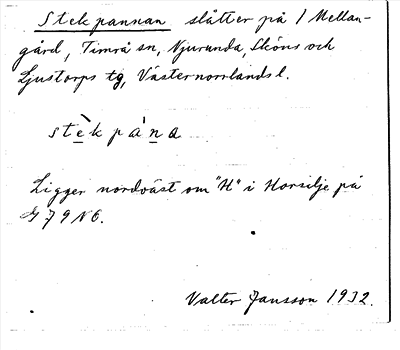 Stekpannan slåtter på 1 Mellan-
gård, Timrå sn, Njurunda, Sköns och
Ljustorps tg, Västernorrlands l.
stèk pána
Ligger nordväst om "H" i Horsilje på
J 7 9 N 6.
Valter Jansson 1932.